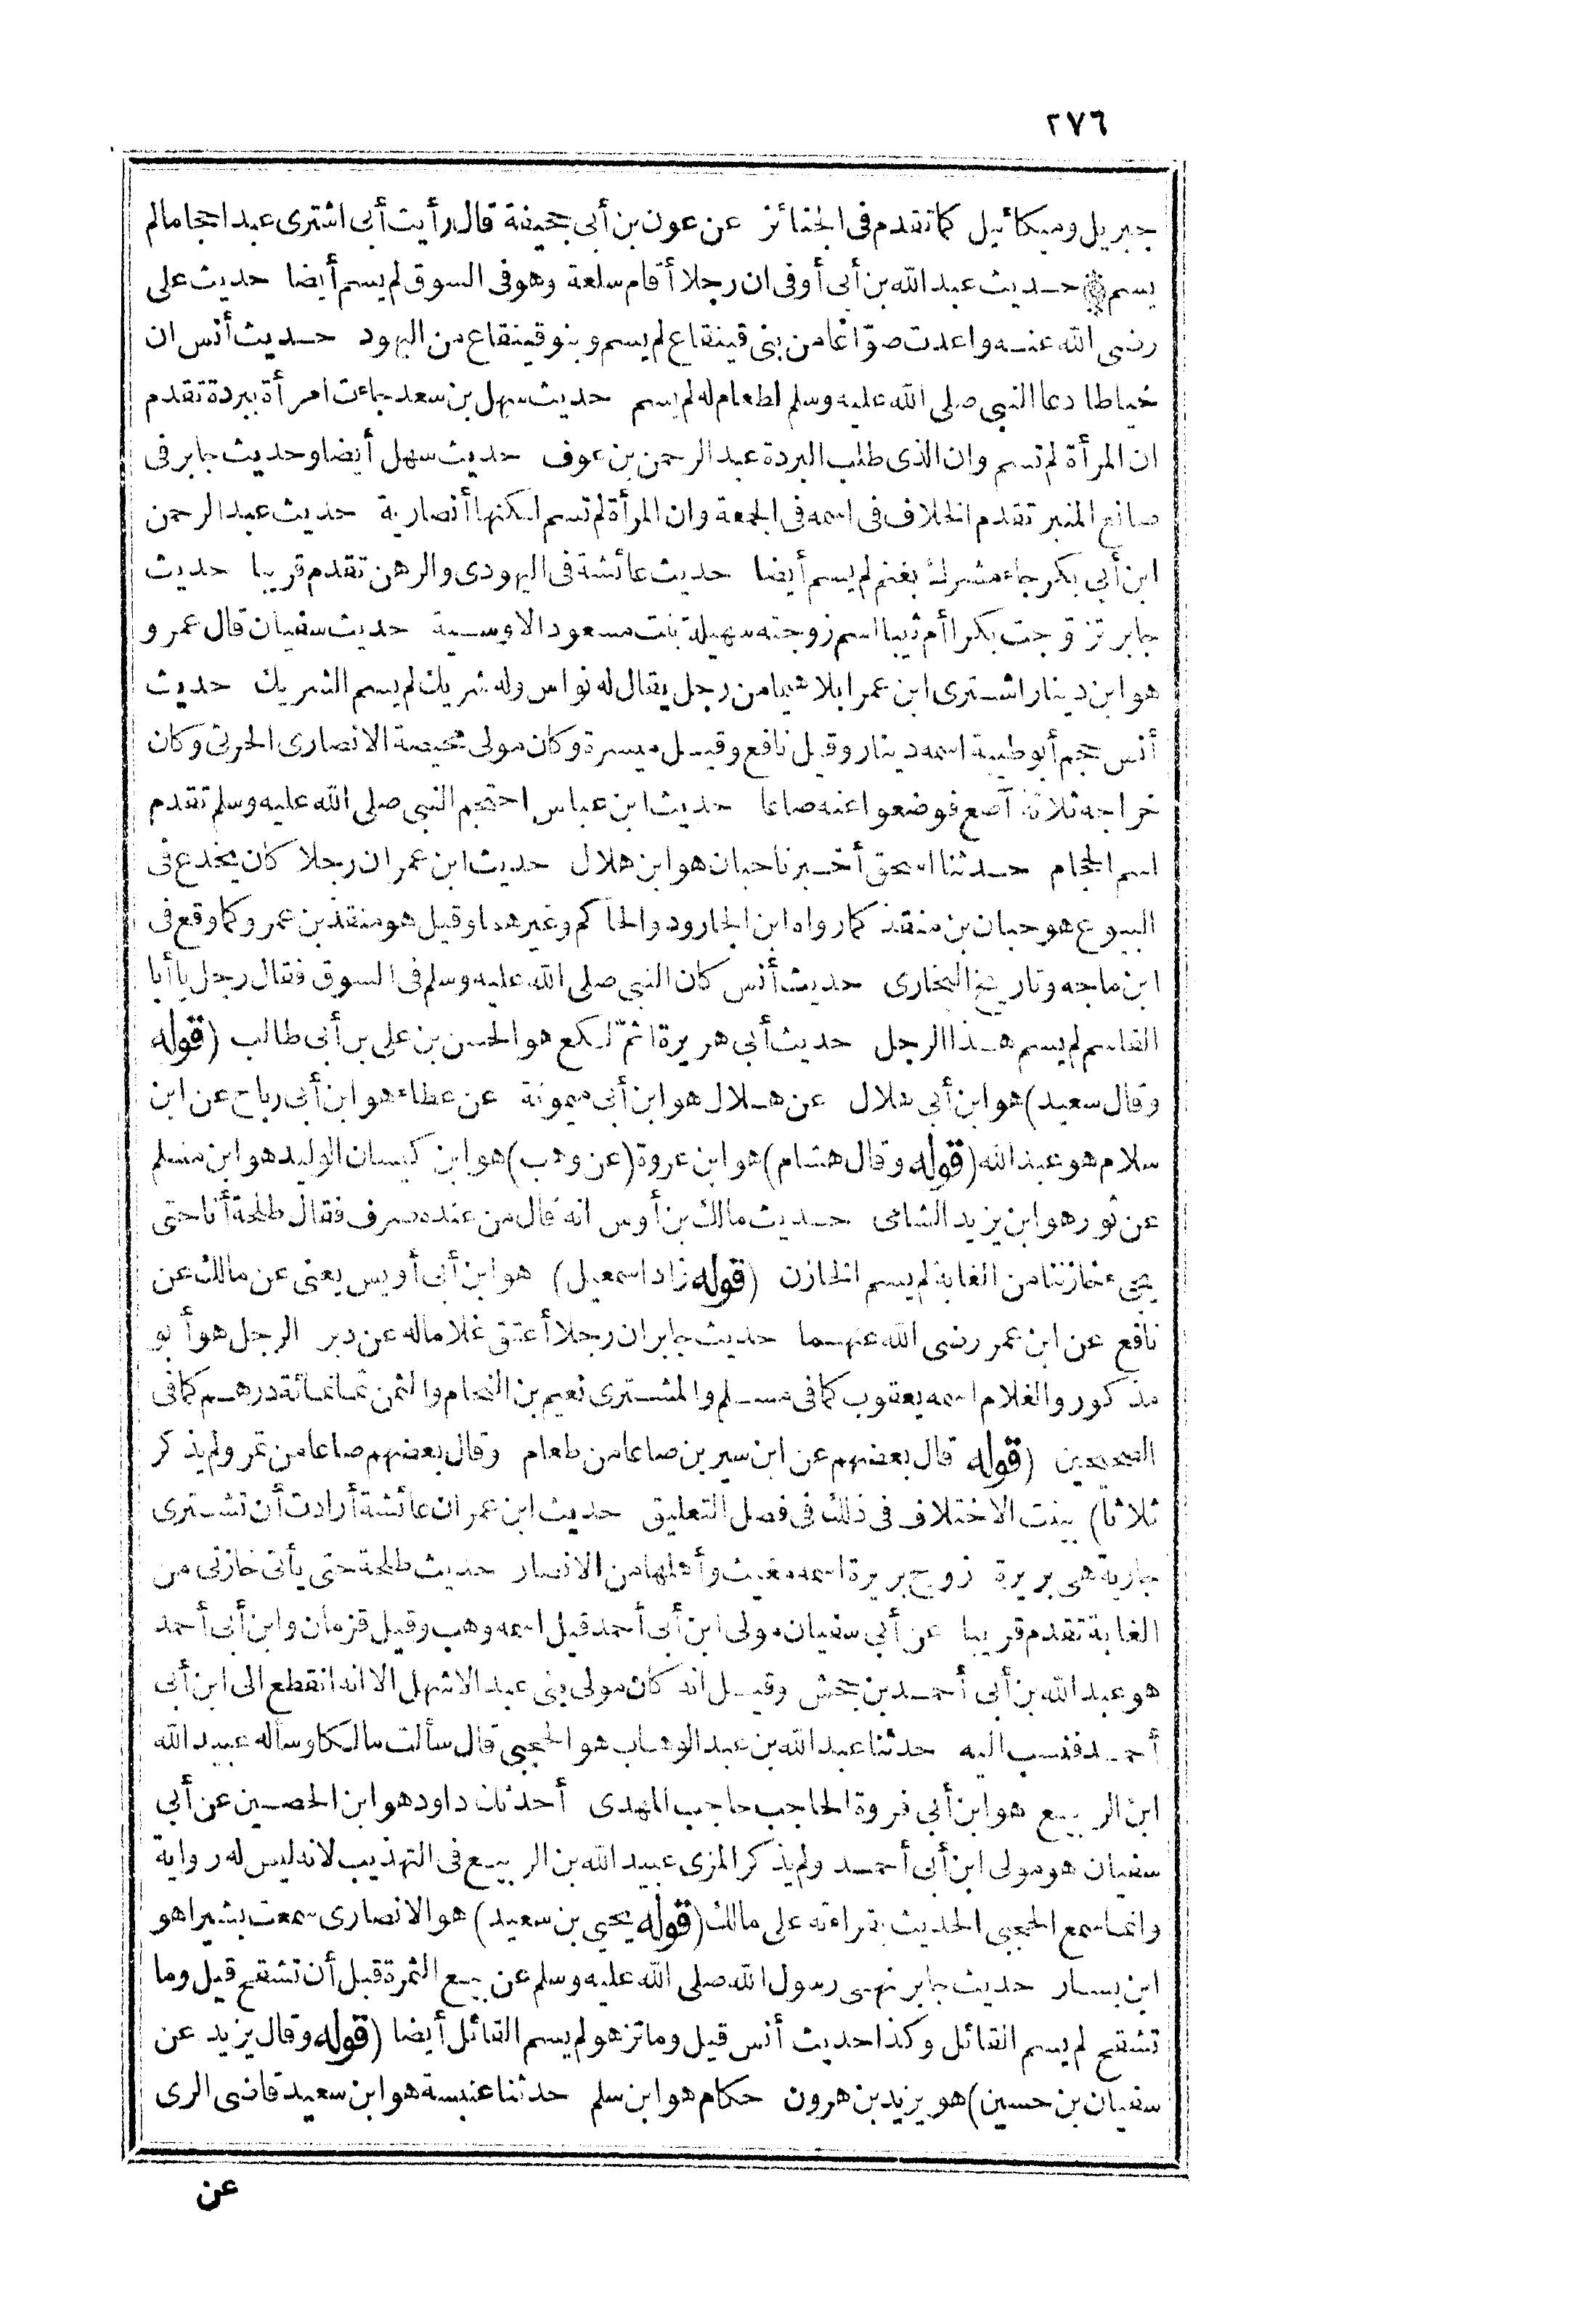 ٢٧٦
جبريل وميكائيل كما تقدم فى الجنائز عن عون بن أبى جحيفة قال رأيت أبى اشترى عبدا حجاما لم
يسم حديث عبد الله بن أبى أوفى ان رجلا أقام سلعة وهو فى السوق لم يسم أيضا حديث على
رضى الله عنه واعدت صوّاغا من بنى قينقاع لم يسم وبنو قينقاع من اليهود حديث أنس ان
خياطا دعا النبى صلى الله عليه وسلم لطعام له لم يسم حديث سهل بن سعد جاءت امرأة ببردة تقدم
ان المرأة لم تسم وان الذى طلب البردة عبد الرحمن بن عوف حديث سهل أيضا وحديث جابر فى
صانع المنبر تقدم الخلاف فى اسمه فى الجمعة وان المرأة لم تسم لكنها أنصارية حديث عبد الرحمن
ابن أبى بكر جاء مشرك بغنم لم يسم أيضا حديث عائشة فى اليهودى والرهن تقدم قريبا حديث
جابر تزوّجت بكرا أم ثيبا اسم زوجته سهيلة بنت مسعود الاوسية حديث سفيان قال عمرو
هو ابن دينار اشترى ابن عمر ابلا هيما من رجل يقال له نواس وله شريك لم يسم الشريك حديث
أنس حجم أبو طيبة اسمه دينار وقيل نافع وقيل ميسرة وكان مولى محيصة الانصارى الحرثى وكان
خراجه ثلاثة آصع فوضعوا عنه صاعا حديث ابن عباس احتجم النبى صلى الله عليه وسلم تقدم
اسم الحجام حدثنا اسحق أخبرنا حبان هو ابن هلال حديث ابن عمر ان رجلا كان يخدع فى
البيوع هو حبان بن منقذ كما رواه ابن الجارود والحاكم وغيرهما وقيل هو منقذ بن عمرو كما وقع فى
ابن ماجه وتاريخ البخارى حديث أنس كان النبى صلى الله عليه وسلم فى السوق فقال رجل يا أبا
القاسم لم يسم هذا الرجل حديث أبى هريرة اثمّ لكع هو الحسن بن على بن أبى طالب (قوله
وقال سعيد) هو ابن أبى هلال عن هلال هو ابن أبى ميمونة عن عطاء هو ابن أبى رباح عن ابن
سلام هو عبد الله (قوله وقال هشام) هو ابن عروة (عن وهب) هو ابن كيسان الوليد هو ابن مسلم
عن ثور هو ابن يزيد الشامى حديث مالك بن أوس انه قال من عنده صرف فقال طلحة أنا حتى
يجىء خازننا من الغابة لم يسم الخازن (قوله زاد اسمعيل) هو ابن أبى أويس يعنى عن مالك عن
نافع عن ابن عمر رضى الله عنهما حديث جابر ان رجلا أعتق غلاما له عن دبر الرجل هو أبو
مذكور والغلام اسمه يعقوب كما فى مسلم والمشترى نعيم بن النحام والثمن ثمانمائة درهم كما فى
الصحيحين (قوله قال بعضهم عن ابن سيرين صاعا من طعام وقال بعضهم صاعا من تمر ولم يذكر
ثلاثا) بينت الاختلاف فى ذلك فى فصل التعليق حديث ابن عمر ان عائشة أرادت أن تشترى
جارية هى بريرة زوج بريرة اسمه مغيث وأهلها من الانصار حديث طلحة حتى يأتى خازنى من
الغابة تقدم قريبا عن أبى سفيان مولى ابن أبى أحمد قيل اسمه وهب وقيل قزمان وابن أبى أحمد
هو عبد الله بن أبى أحمد بن جحش وقيل انه كان مولى بنى عبد الاشهل الا انه انقطع الى ابن أبى
أحمد فنسب اليه حدثنا عبد الله بن عبد الوهاب هو الحجبى قال سألت مالكا وسأله عبيد الله
ابن الربيع هو ابن أبى فروة الحاجب حاجب المهدى أحدثك داود هو ابن الحصين عن أبى
سفيان هو مولى ابن أبى أحمد ولم يذكر المزى عبيد الله بن الربيع فى التهذيب لانه ليس له رواية
وانما سمع الحجبى الحديث بقراءته على مالك (قوله يحيى بن سعيد) هو الانصارى سمعت بشيرا هو
ابن يسار حديث جابر نهى رسول الله صلى الله عليه وسلم عن بيع الثمرة قبل أن تشقح قيل وما
تشقح لم يسم القائل وكذا حديث أنس قيل وما تزهو لم يسم القائل أيضا (قوله وقال يزيد عن
سفيان بن حسين) هو يزيد بن هرون حكام هو ابن سلم حدثنا عنبسة هو ابن سعيد قاضى الرى
عن